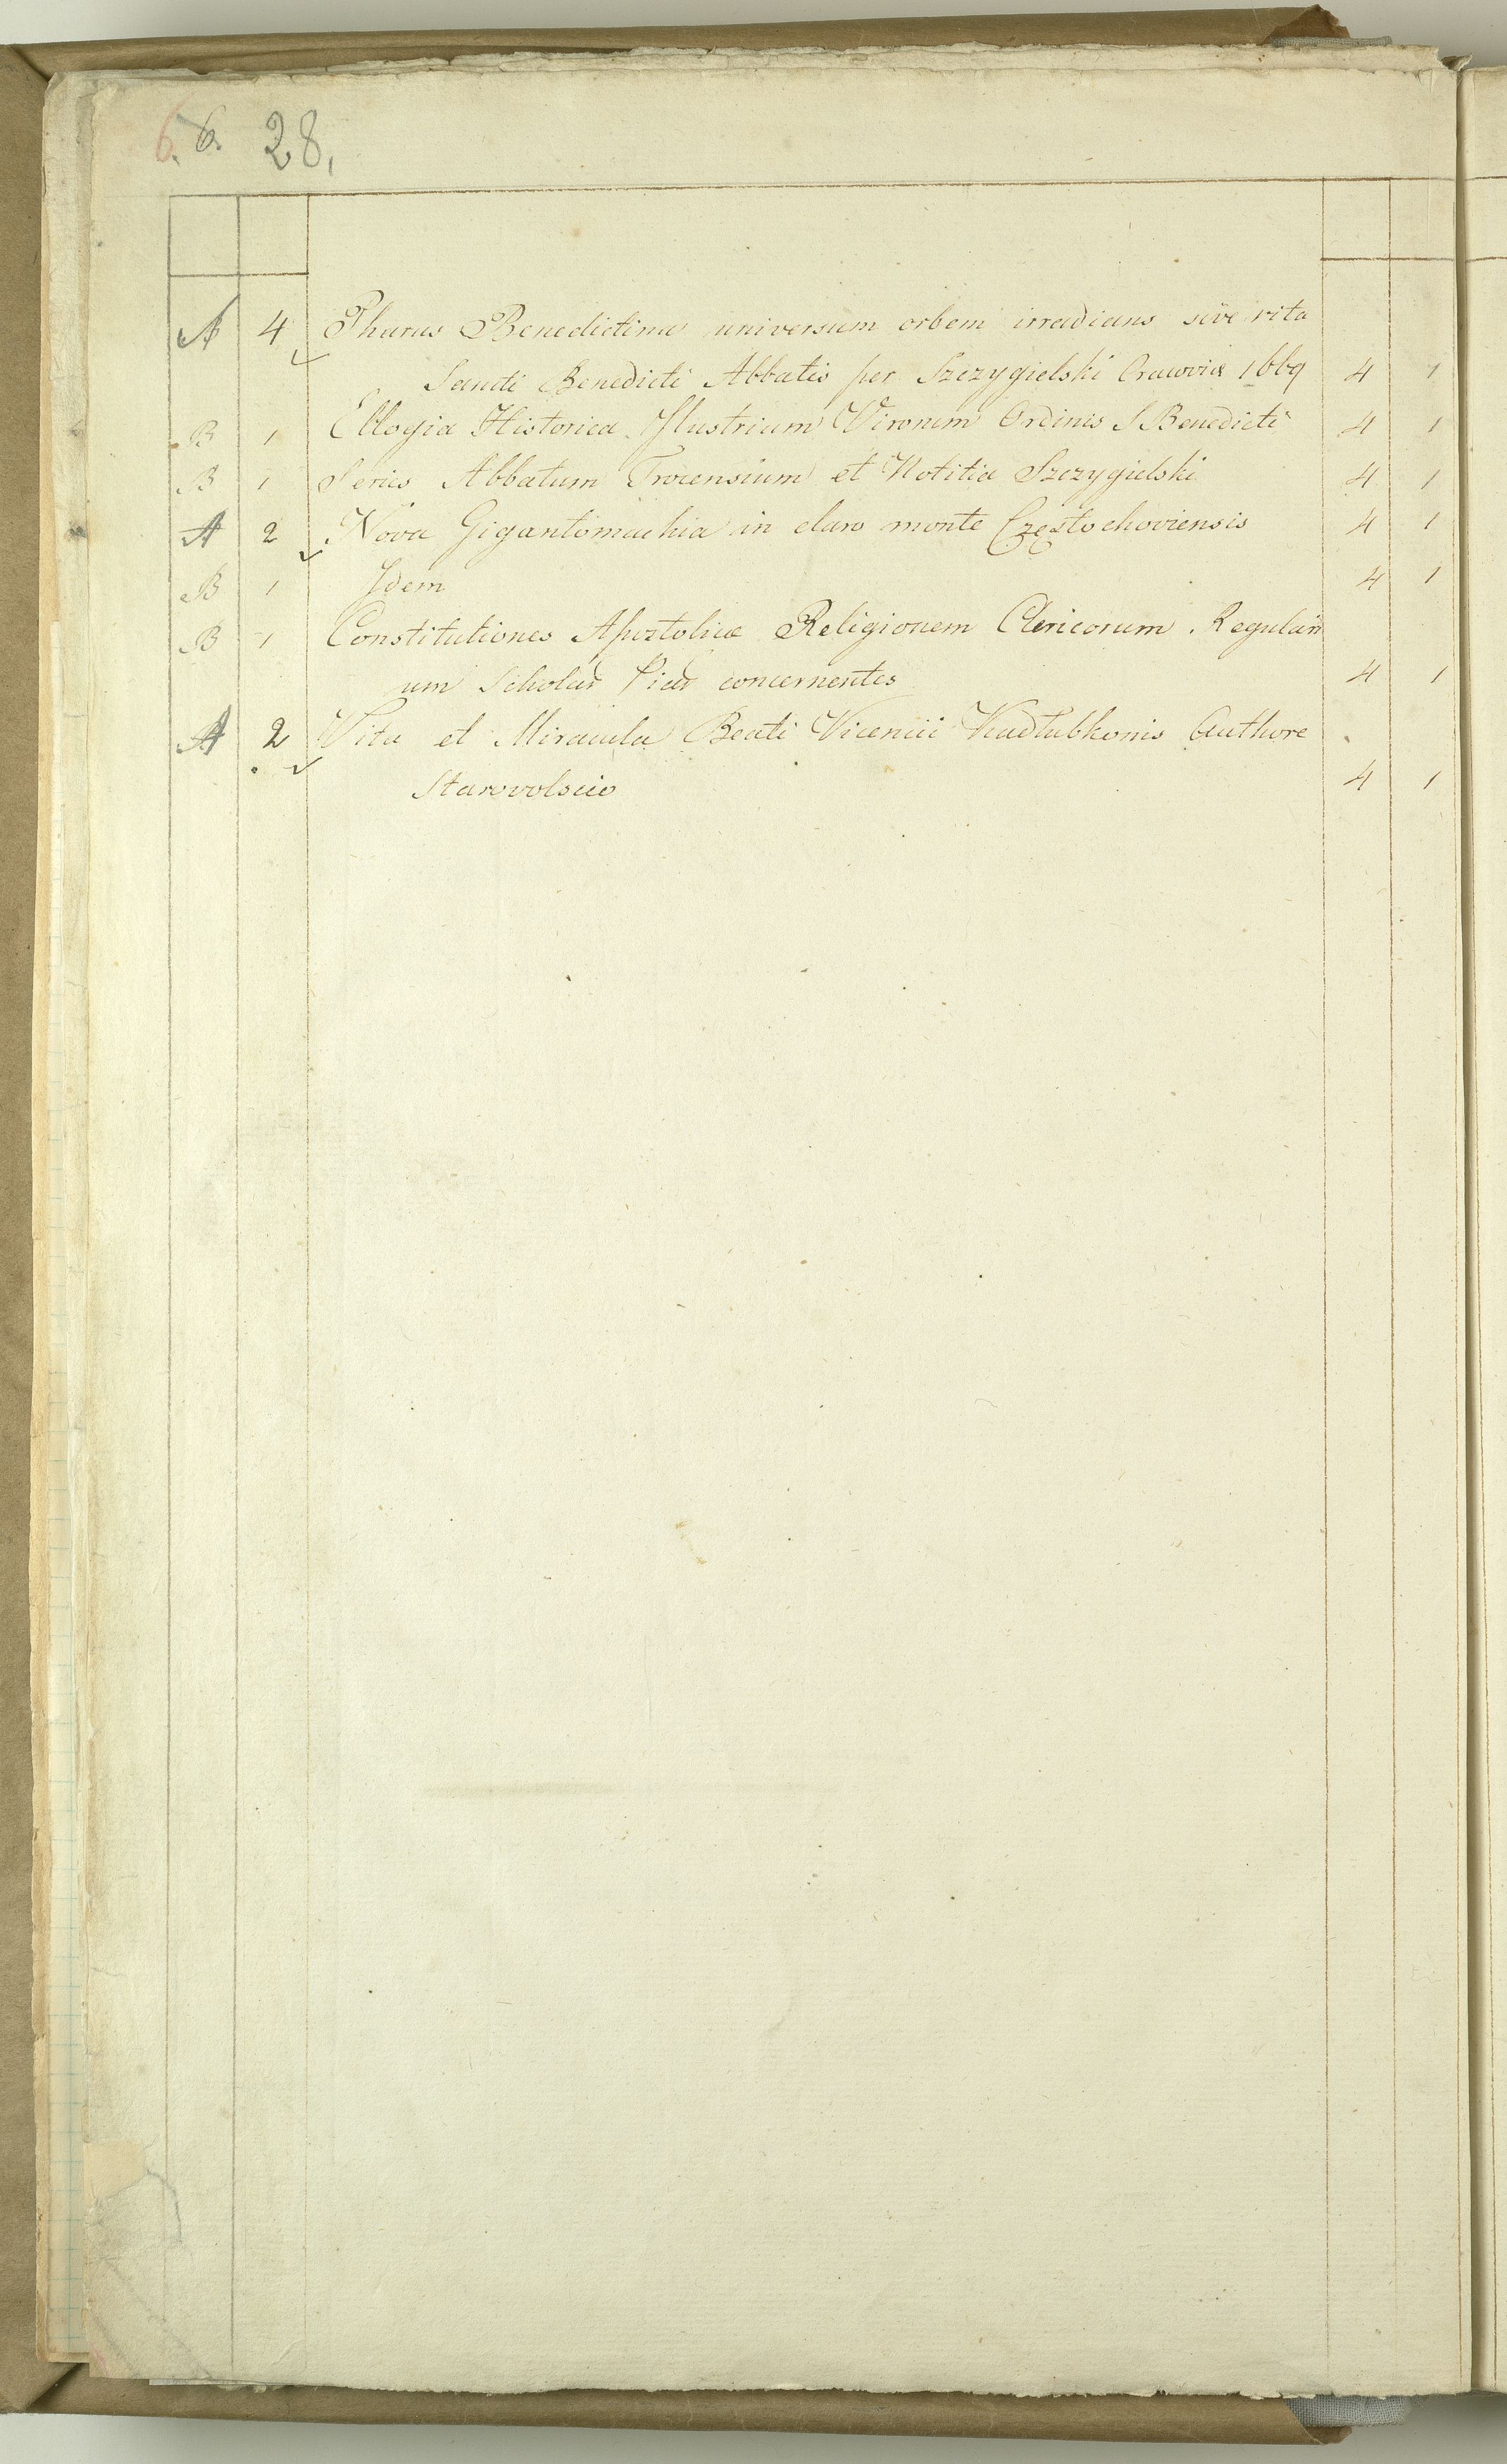 6. 6. 28.
A 4 Pharus Benedictina universum orbem irradians sive vita
Sancti Benedicti Abbatis per Szczygielski Cracoviæ 1669 4 1
B 1 Ellogia Historica Illustrium Virorum Ordinis S Benedicti 4 1
B 1 Series Abbatum Trocensium et Notitia Szczygielski 4 1
A 2 Nova Gigantomachia in claro monte Częstochoviensis 4 1
B 1 Idem 4 1
B 1 Constitutiones Apostolicæ Religionem Clericorum Regulari
um Scholar Piar concernentes 4 1
A 2 Vita et Miracula Beati Vicencii Kadlubkonis Authore
Starovolscio 4 1